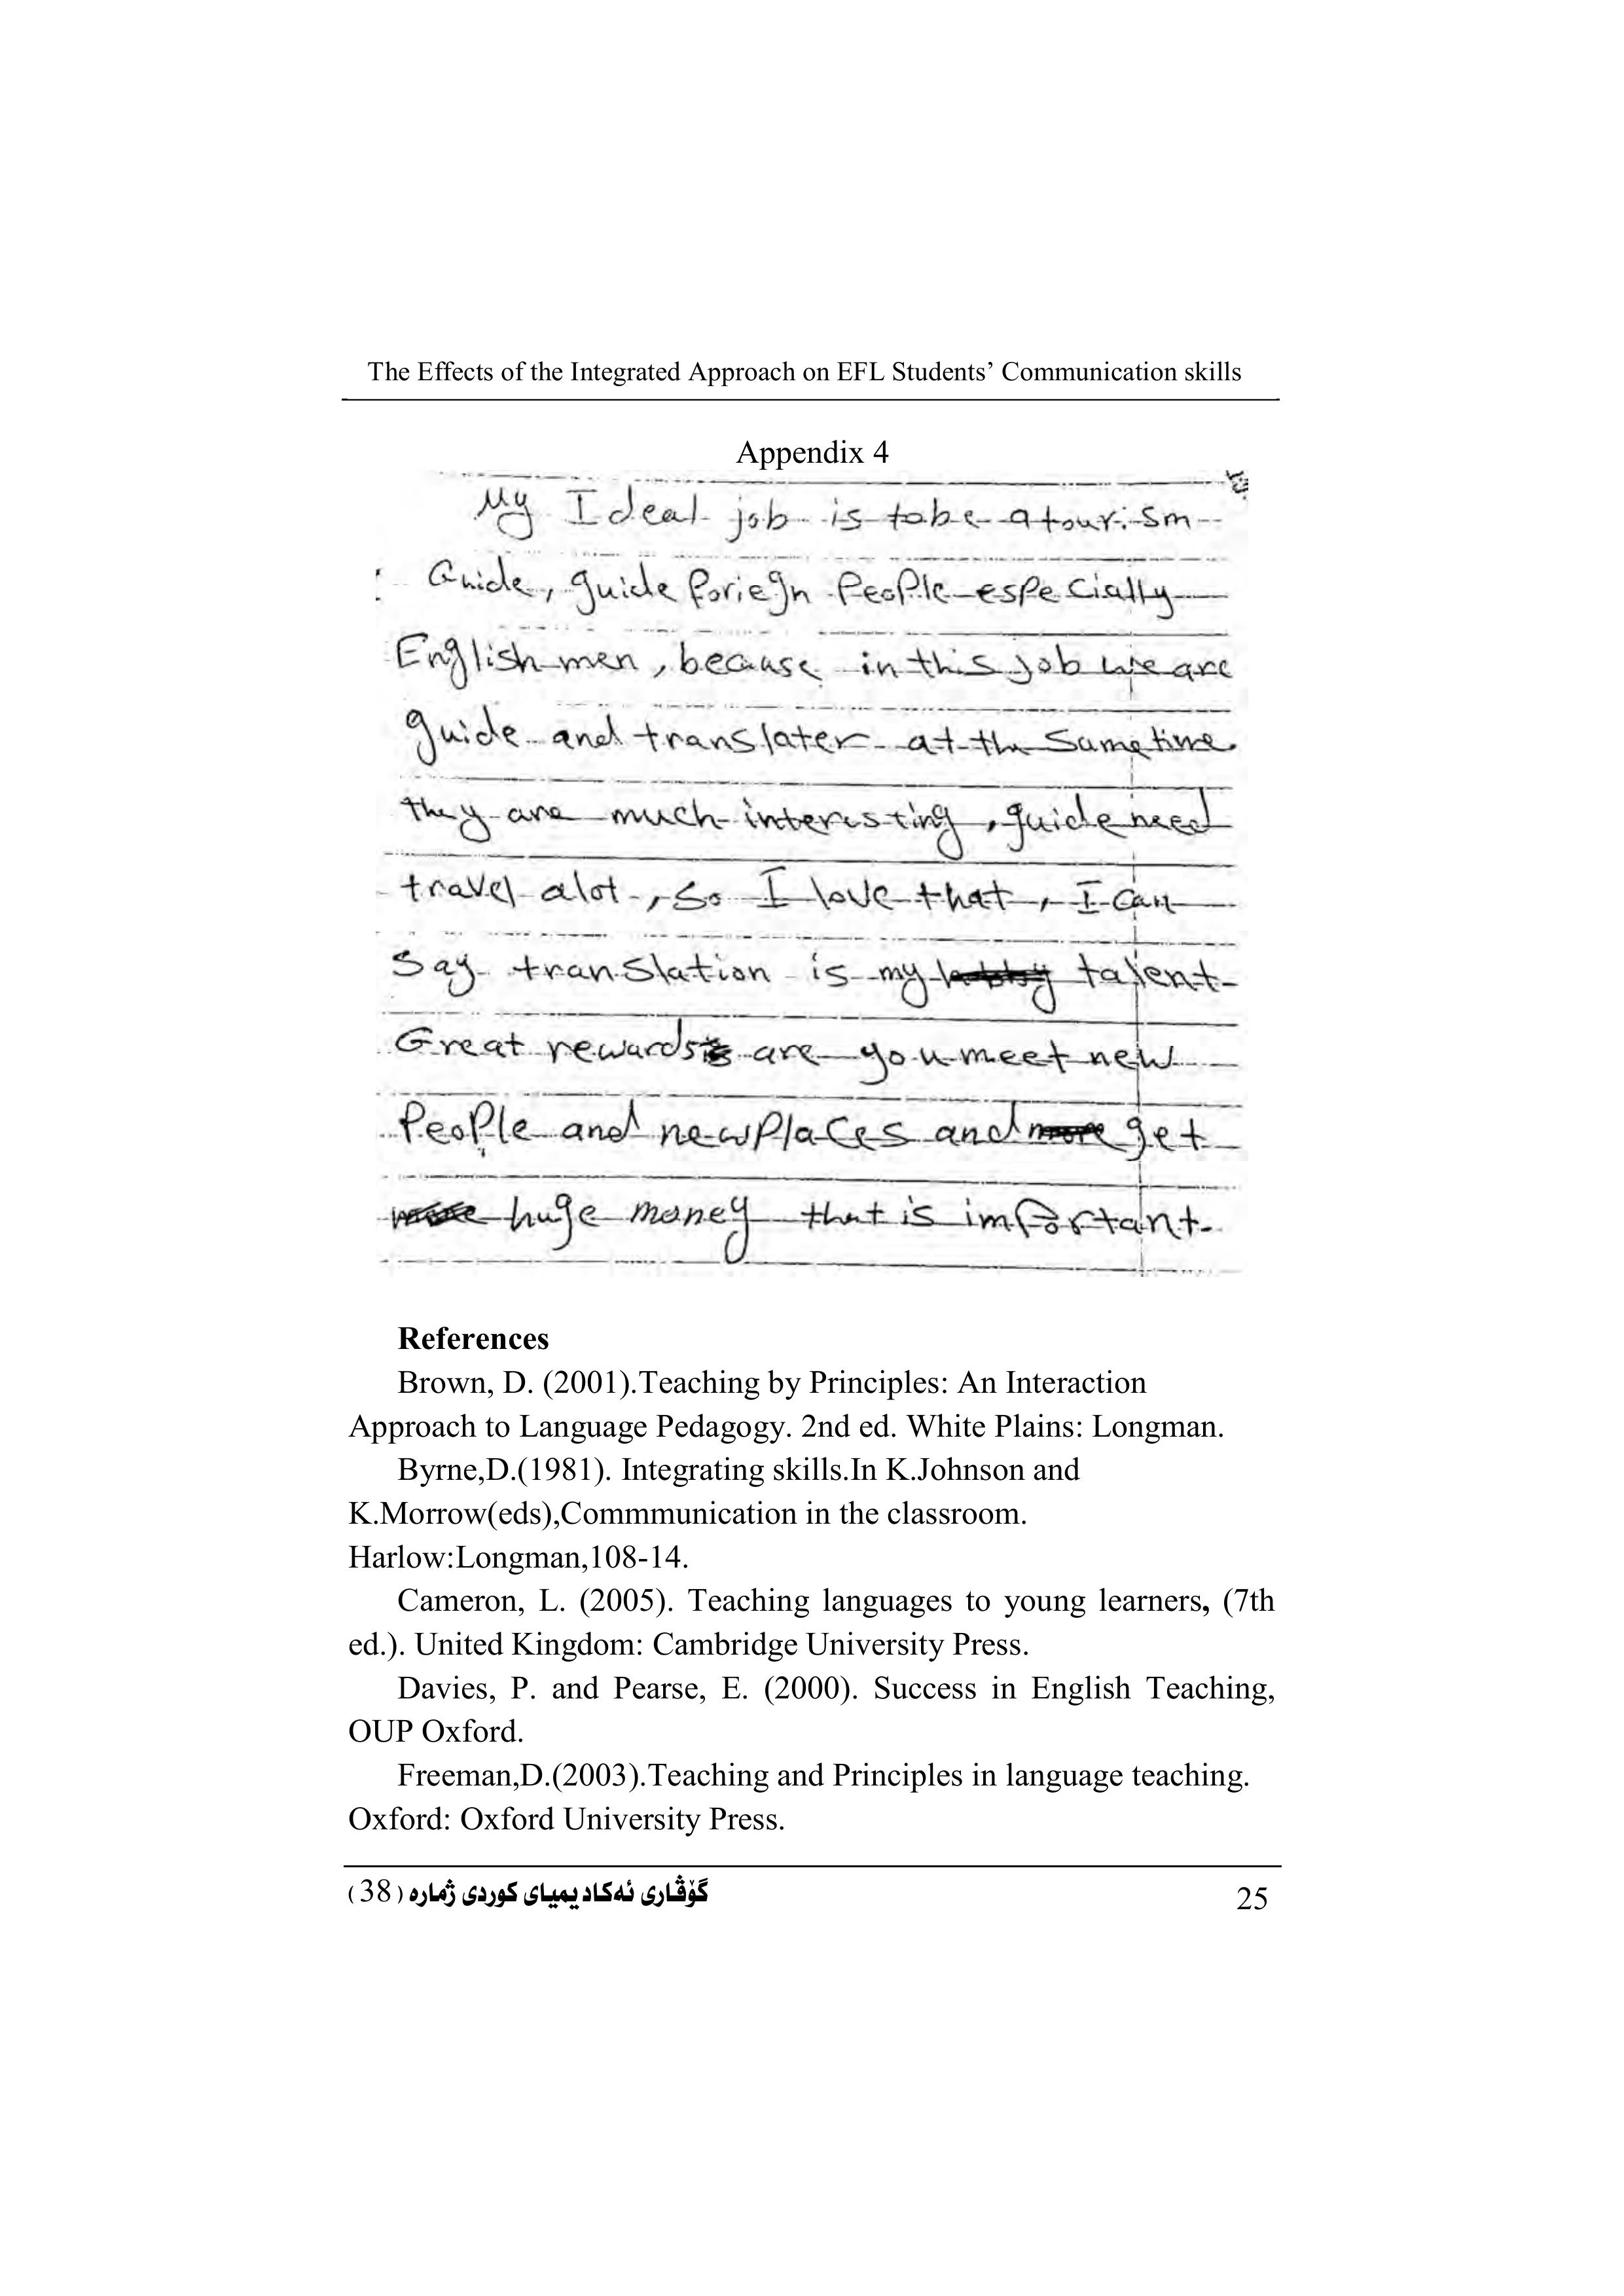 The Effects of the Integrated Approach on EFL Students’ Communication skills
Appendix 4
My Ideal job is to be a tourism
Guide, guide foriegn People especially
English men, because in this job we are
guide and translater at the same time.
they are much interesting, guide need
travel alot, so I love that, I can
Say translation is my talent.
Great rewards are you meet new
People and new Places and get
huge money that is important.
References
Brown, D. (2001).Teaching by Principles: An Interaction
Approach to Language Pedagogy. 2nd ed. White Plains: Longman.
Byrne,D.(1981). Integrating skills.In K.Johnson and
K.Morrow(eds),Commmunication in the classroom.
Harlow:Longman,108-14.
Cameron, L. (2005). Teaching languages to young learners, (7th
ed.). United Kingdom: Cambridge University Press.
Davies, P. and Pearse, E. (2000). Success in English Teaching,
OUP Oxford.
Freeman,D.(2003).Teaching and Principles in language teaching.
Oxford: Oxford University Press.
گۆڤاری ئەکادیمیای کوردی ژمارە (38)
25